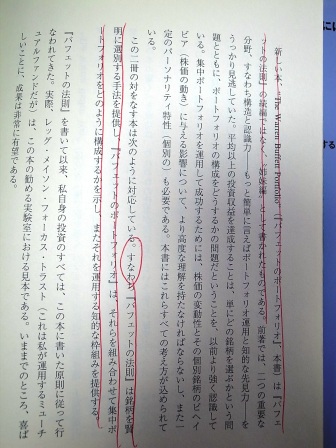 新しい本、The Warren Buffett Portfolio（『バフェットのポートフォリオ』、本書）は『バフェ
ットの法則』の続編ではなく、姉妹編として書かれたものである。前著では、二つの重要な
分野、すなわち構造と認識力――もっと簡単に言えばポートフォリオ運用と知的な先見力――を
うっかり見逃していた。平均以上の投資収益を達成することは、単にどの銘柄を選ぶかという問
題とともに、ポートフォリオの構成をどうするかの問題だということを、以前より強く認識して
いる。集中ポートフォリオを運用して成功するためには、株価の変動性とその個別銘柄のビヘイ
ビア（株価の動き）に与える影響について、より高度な理解を持たなければならないし、また一
定のパーソナリティ特性（個別の）も必要である。本書にはこれらすべての考え方が込められて
いる。
この二冊の対をなす本は次のように対応している。すなわち『バフェットの法則』は銘柄を賢
明に選別する手法を提供し、『バフェットのポートフォリオ』は、それらを組み合わせて集中ポ
ートフォリオをどのように構成するかを示し、またそれを運用する知的な枠組みを提供する。
『バフェットの法則』を書いて以来、私自身の投資のすべては、この本に書いた原則に従って行
なわれてきた。実際、レッグ・メイソン・フォーカス・トラスト（これは私が運用するミューチ
ュアルファンドだが）は、この本の勧める実験室における見本である。いままでのところ、喜ば
しいことに、成果は非常に有望である。